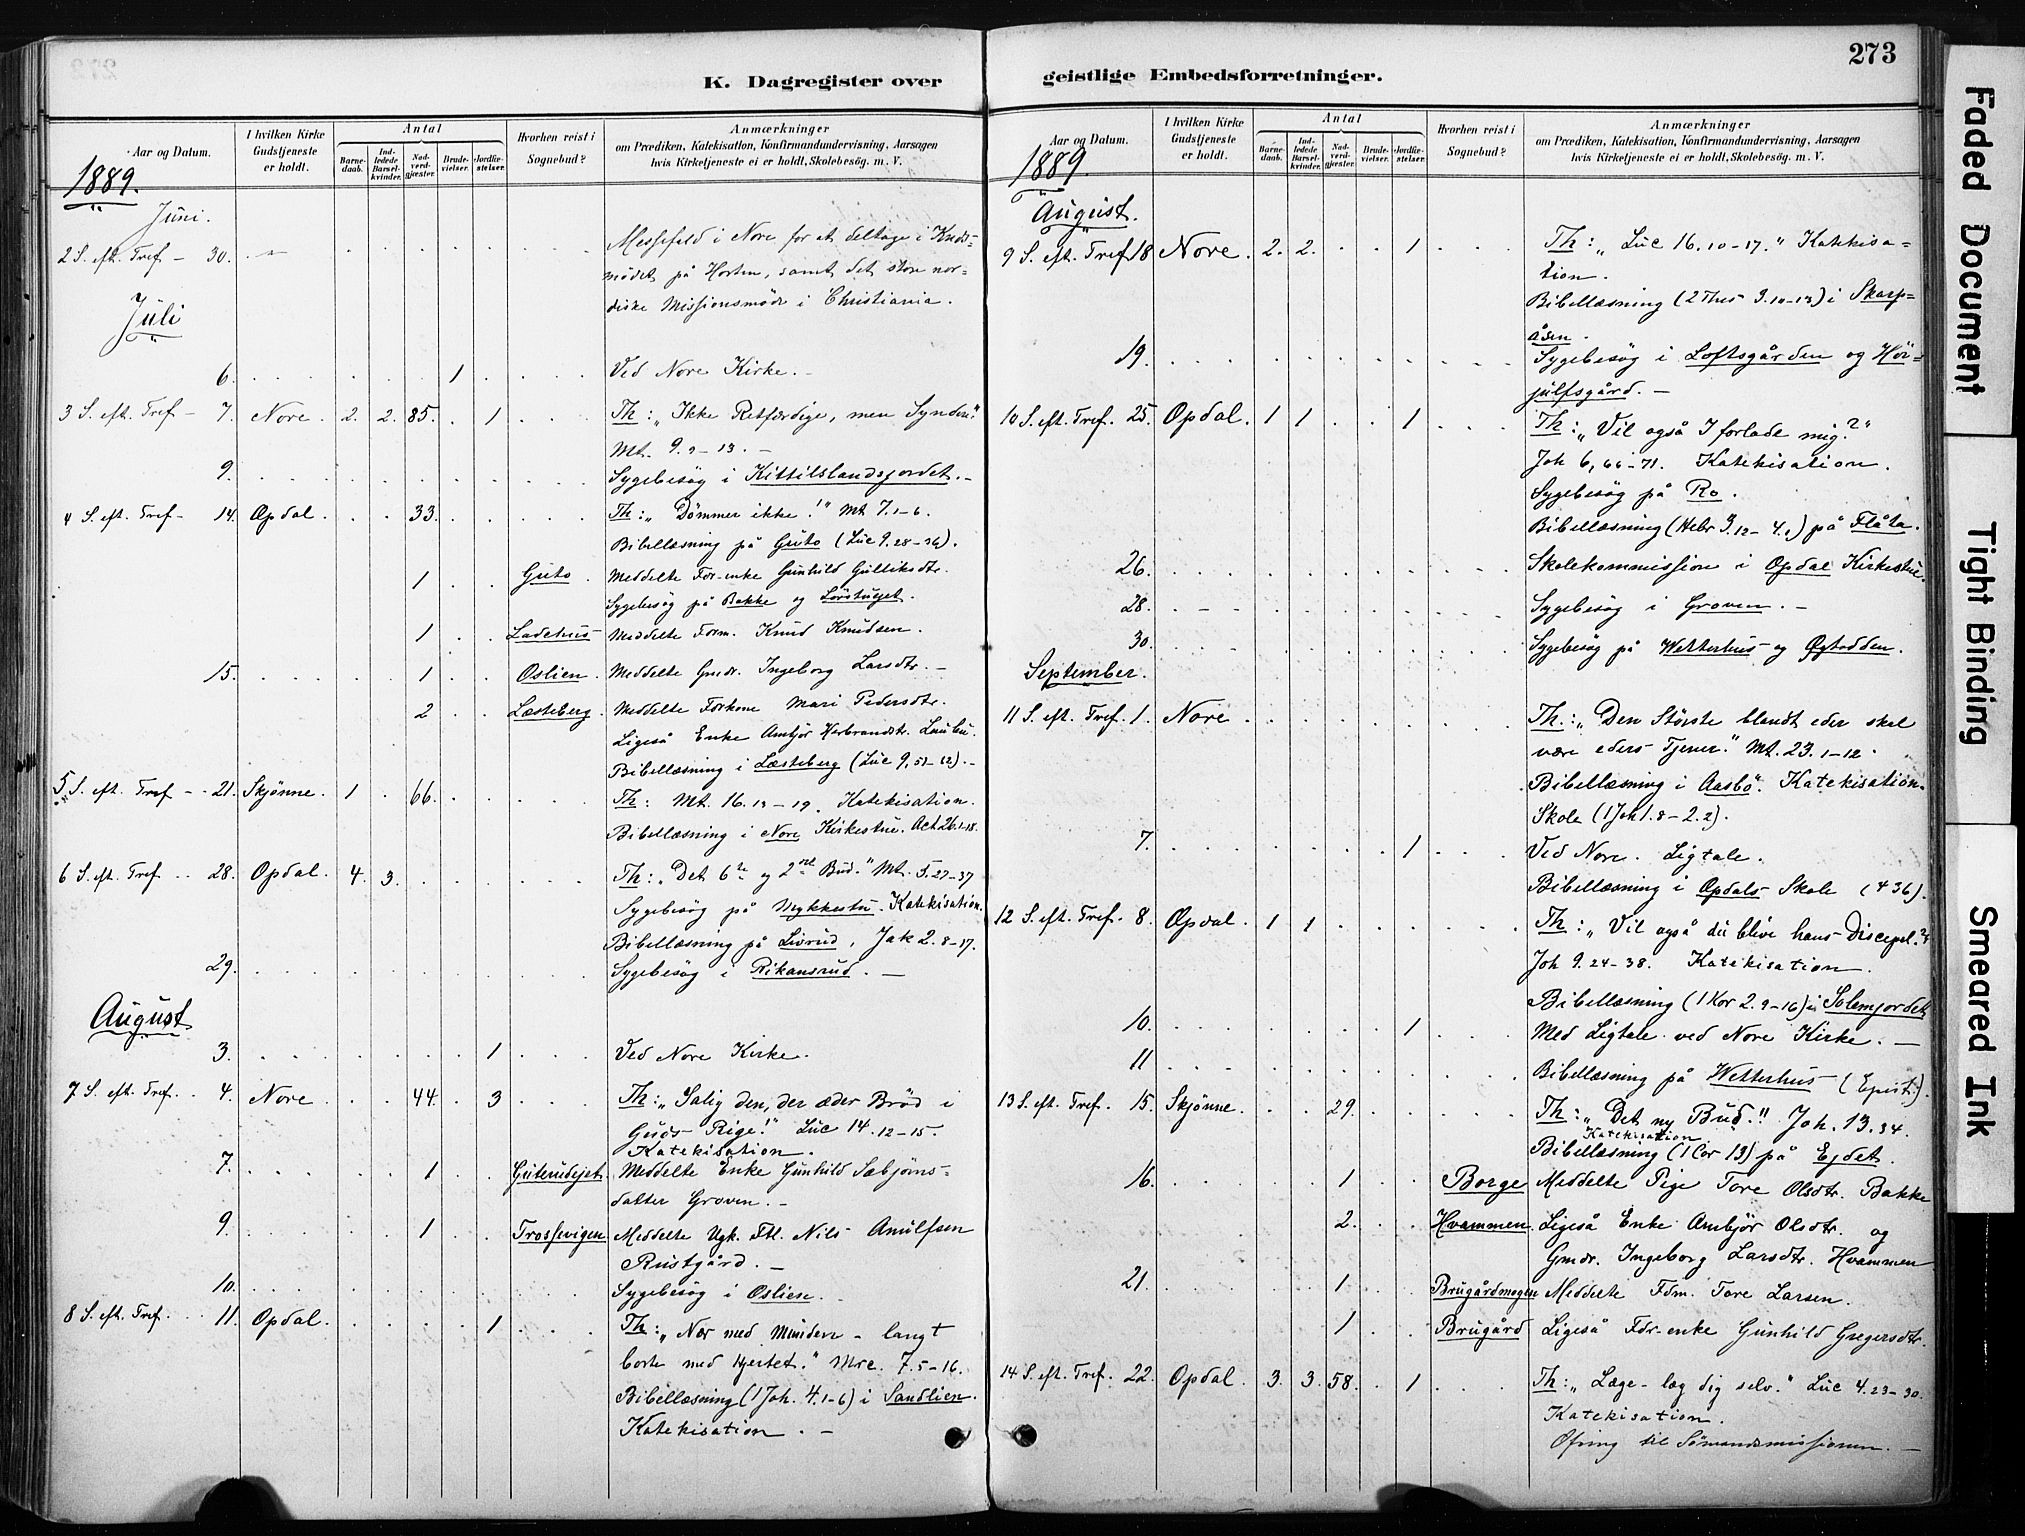 273
K. Dagregister over geistlige Embedsforretninger.
Aar og Datum.
I hvilken Kirke Gudstjeneste er holdt.
Antal
Barnedaab.
Indledede Barselkvinder.
Nadverdgjæster.
Brudevielser.
Jordfæstelser.
Hvorhen reist i Sognebud?
Anmærkninger
om Prædiken, Katekisation, Konfirmandundervisning, Aarsagen
hvis Kirketjeneste ei er holdt, Skolebesøg. m. V.
1889.
Juni.
2 S. eft. Tref – 30. Messefald i Nore for at deltage i Kreds-
mødet på Horten, samt det store nor-
diske Missionsmöde i Christiania.
Juli
6. 1 Ved Nore Kirke. –
3 S. eft. Tref – 7. Nore. 2. 2. 85. 1 Th: „Ikke Retfærdige, men Syndere."
Mt. 9. 9–13. –
9. Sygebesøg i Kittilslandsjordet. –
4 S. eft. Tref – 14. Opdal. 33. Th: „Dömmer ikke!" Mt 7.1–6.
Bibellæsning på Guto (Luc 9. 28–36).
1 Guto. Meddelte For-enke Gunhild Gulliksdtr.
Sygebesøg på Bakke og Lörstuejet.
1 Ladehus Meddelte Form. Knud Knudsen.
15. 1 Oslien. Meddelte Gmdr. Ingeborg Larsdtr. –
2 Læsteberg. Meddelte Fdrkone Mari Pedersdtr.
Ligeså Enke Ambjör Herbrandstr. Laubu.
Bibellæsning i Læsteberg (Luc 9, 57–62). –
5 S. eft. Tref – 21. Skjønne. 1 66. Th: Mt. 16. 13–19. Katekisation.
Bibellæsning i Nore Kirkestue. Act 26.1–18.
6 S. eft. Tref 28. Opdal. 4. 3. Th: „Det 6te og 2net Bud." Mt. 5. 27–37
Sygebesøg på Mykkestu. Katekisation.
Bibellæsning på Livrud, Jak 2. 8–17.
29. Sygebesøg i Rikansrud. –
August
3. 1 Ved Nore Kirke.
7 S. eft. Tref. 4. Nore. 44. 3 Th: „Salig den, der æder Brød i
Guds Rige!" Luc 14. 12–15.
Katekisation.
7. 1 Guterudejet. Meddelte Enke Gunhild Sæbjörns-
datter Groven. –
9. 1 Trossevigen Meddelte Ugk. Ftl. Nils Anulfsen
Rustgård. –
10. Sygebesøg i Oslien.
8 S. eft. Tref. 11. Opdal. 1 Th: „Nær med Munden – langt
borte med Hjertet." Mrc. 7. 5–16.
Bibellæsning (1 Joh. 4. 1–6) i Sandlien.
Katekisation. –
Aar og Datum.
I hvilken Kirke Gudstjeneste er holdt.
Antal
Barnedaab.
Indledede Barselkvinder.
Nadverdgjæster.
Brudevielser.
Jordfæstelser.
Hvorhen reist i Sognebud?
Anmærkninger
om Prædiken, Katekisation, Konfirmandundervisning, Aarsagen
hvis Kirketjeneste ei er holdt, Skolebesøg. m. V.
1889.
August.
9 S. eft. Tref. 18 Nore. 2. 2. 1 Th: „Luc 16. 10–17." Katekisa-
tion.
Bibellæsning (2 Thes 3. 10–13) i Skarp-
åsen.
19. Sygebesøg i Loftsgården og Hör-
julfsgård. –
10 S. eft. Tref. 25. Opdal. 1 1 1 Th: „Vil også I forlade mig?"
Joh 6, 66–71. Katekisation.
Sygebesøg på Ro.
Bibellæsning (Hebr 3. 12–4. 2) på Flåta.
26. Skolekommission i Opdal Kirkestue.
28. Sygebesøg i Groven. –
30. Sygebesøg på Wetterhus og Øgtodden.
September.
11 S. eft. Tref. 1. Nore. Th: „Den Störste blandt eder skal
være eders Tjener." Mt. 23. 1–12.
Bibellæsning i Aasbö. Katekisation.
Skole (1 Joh 1. 8–2. 2).
7. 1 Ved Nore. Ligtale.
Bibellæsning i Opdals Skole (ψ 36).
12 S. eft. Tref. 8. Opdal. 1 1 Th: „Vil også du blive hans Discipel?"
Joh 9. 24–38. Katekisation.
Bibellæsning (1 Kor 2. 9–16) i Solemjordet
10. 1 Med Ligtale ved Nore Kirke. –
11 Bibellæsning på Wetterhus (Epist.).
13 S. eft. Tref. 15. Skjönne. 29. Th: „Det ny Bud." Joh. 13. 34.
Katekisation
Bibellæsning (1 Cor 13) på Ejdet.
16. 1 Borge Meddelte Pige Tore Olsdtr. Bakke
2. Hvammen. Ligeså Enke Ambjör Olsdtr. og
Gmdr. Ingeborg Larsdtr. Hvammen
21. 1 Brugårdmogen Meddelte Fdm. Tore Larsen.
1 Brugård Ligeså Fdr-enke Gunhild Gregersdtr.
14 S. eft. Tref. 22. Opdal. 3. 3. 58. 1 Th: „Læge – læg dig selv." Luc 4. 23–30.
Katekisation.
Ofring til Sömandsmissionen. –
Faded Document
Tight Binding
Smeared Ink